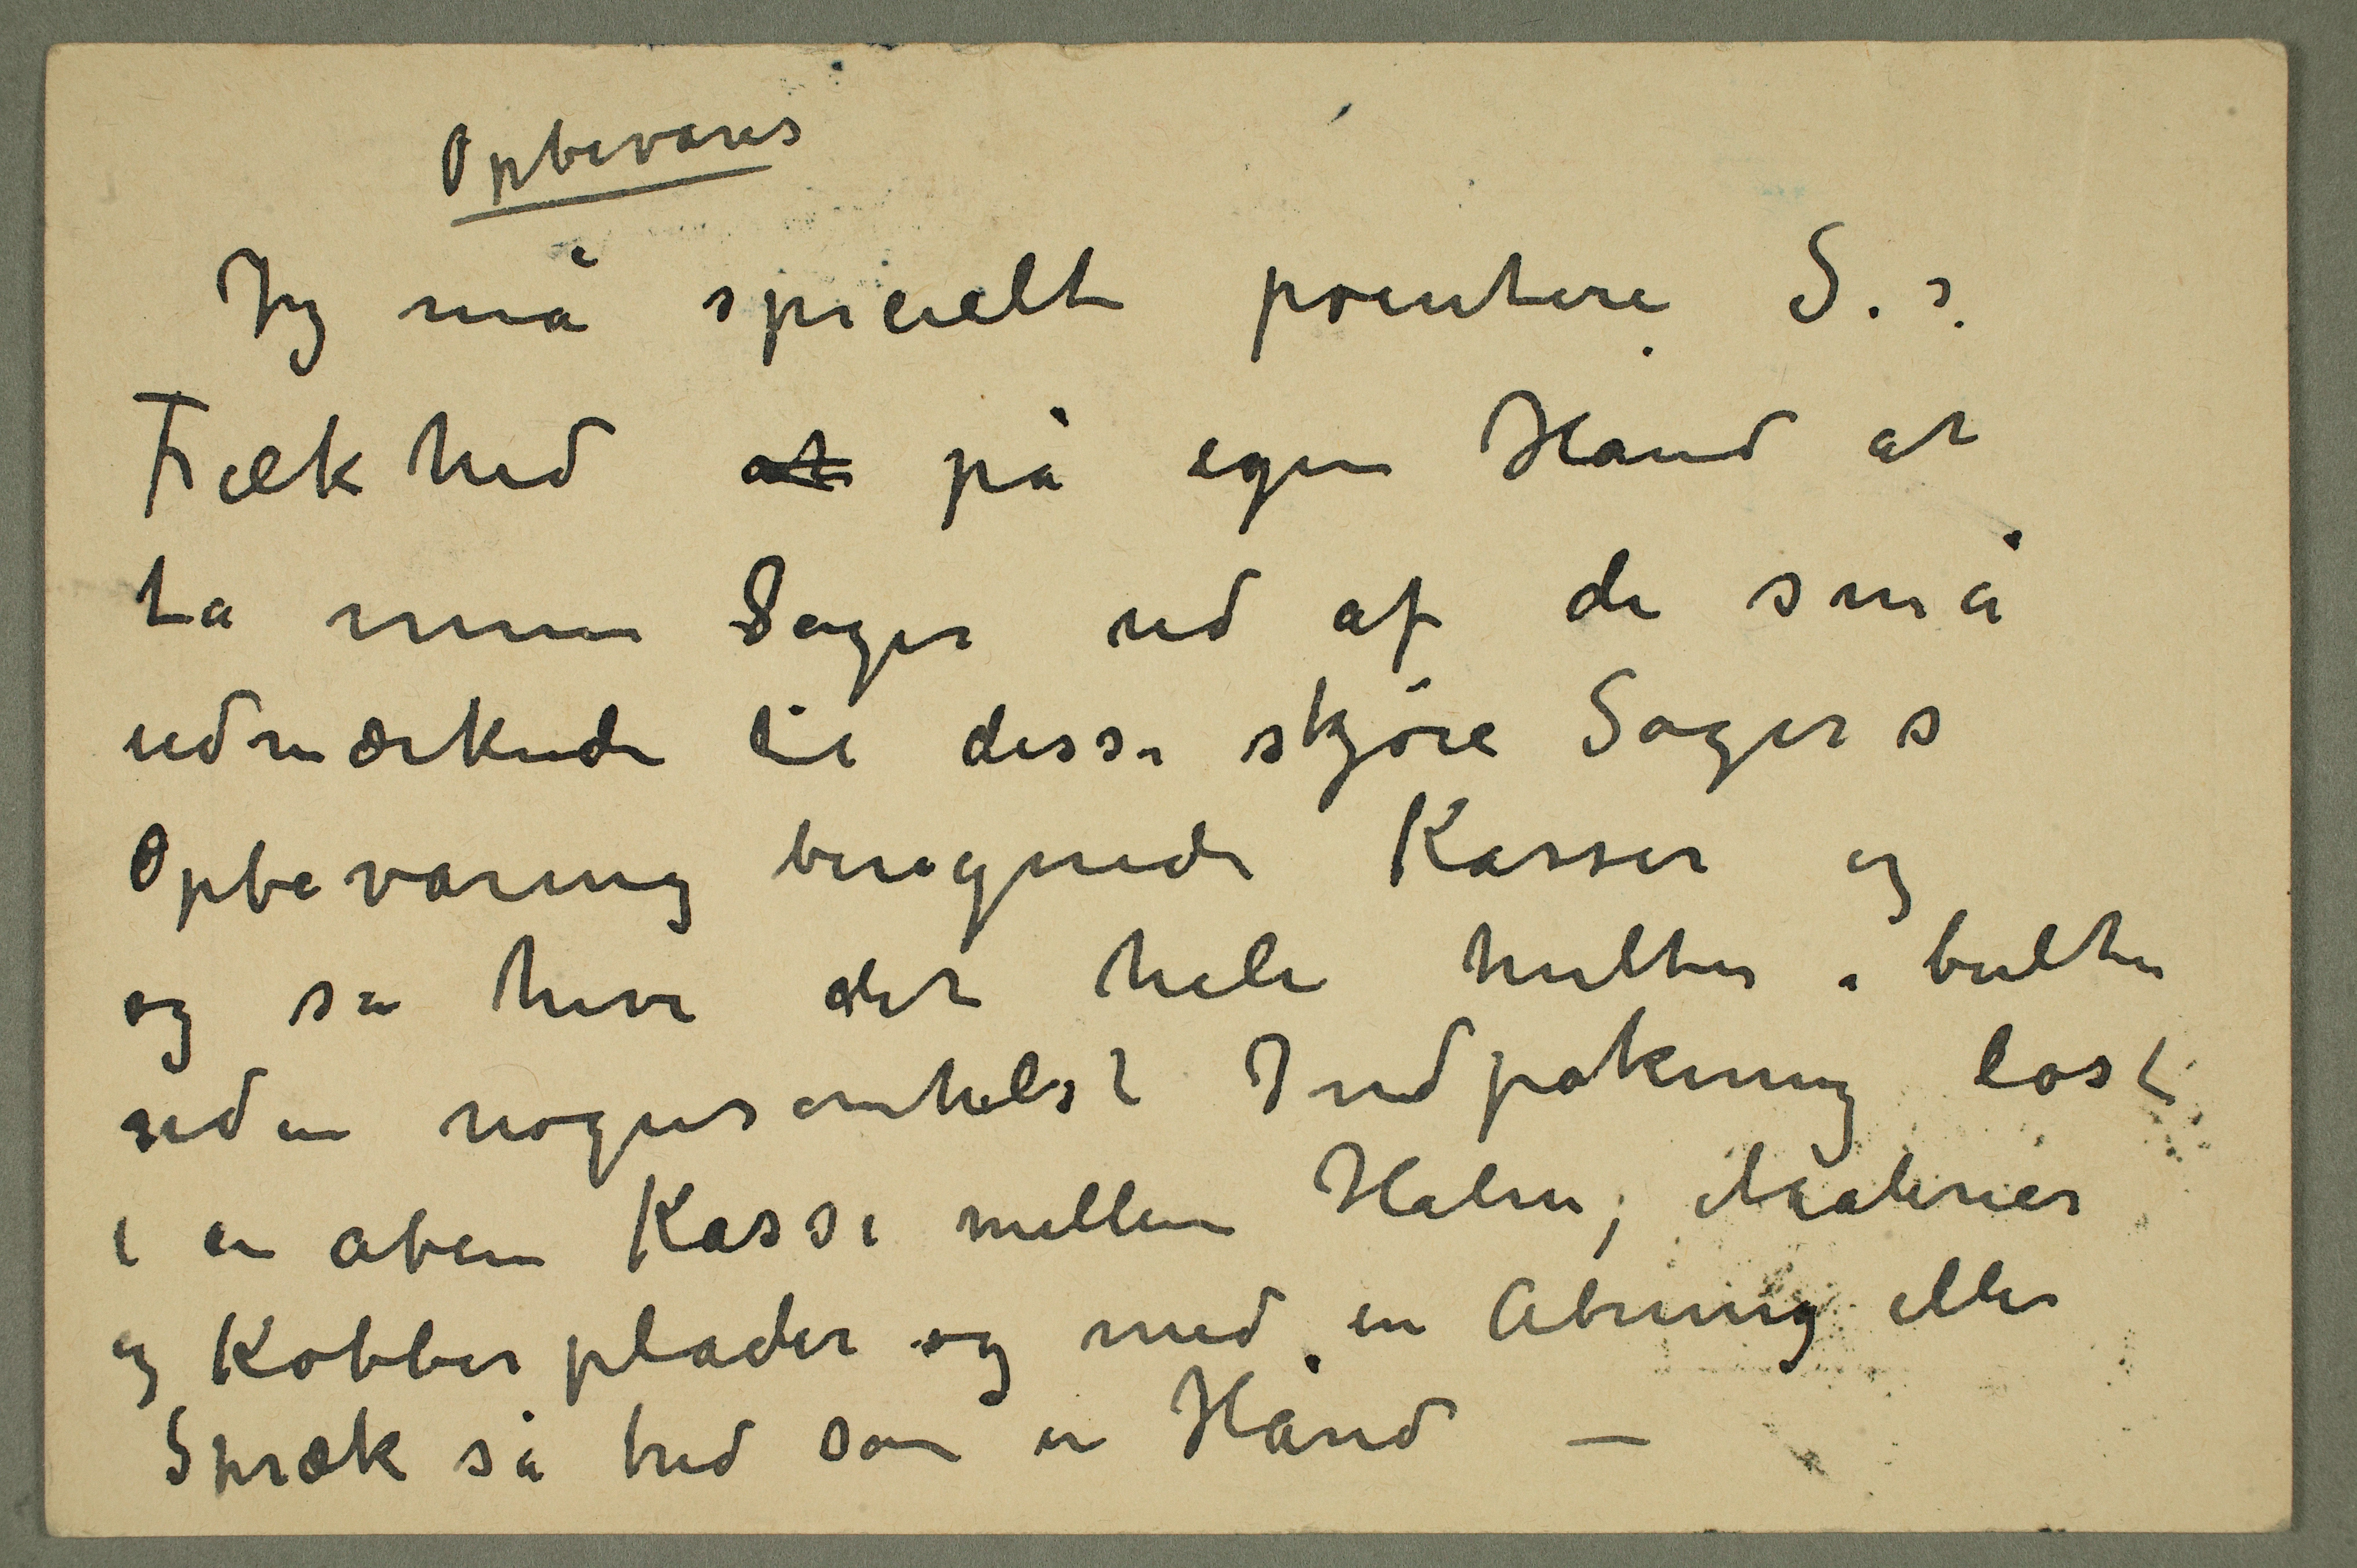 Opbevares
Jeg må specielt pointere S.s.
Frækhed at på egen Hånd at
ta mine Sager ud af de små
udmærkede til disse skjöre Sagers
Opbevaring beregnede Kasser og
og så hive det hele hulter i bulter
uden nogensomhelst Indpakning løst
i en aben Kasse mellem Halm; Malerier
og Kobberplader og med en Abning eller
Spræk så bred som en Hånd —